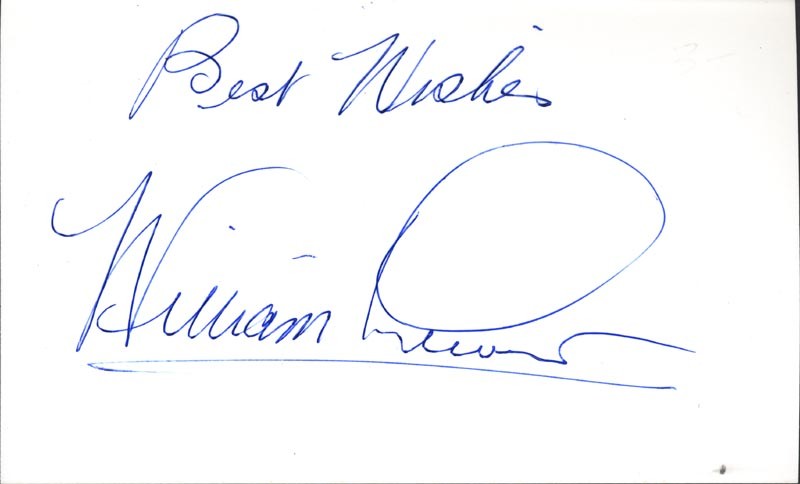 Best Wishes
William